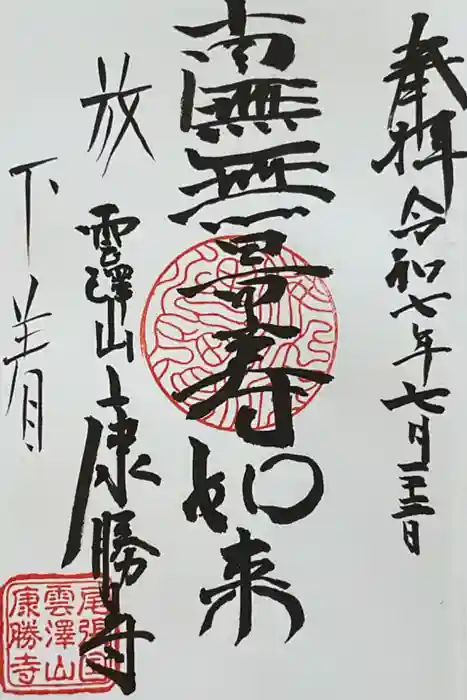 奉拝 令和七年七月二十三日
南無無量寿如来
放
雲澤山 康勝寺
下着
尾張国
雲澤山
康勝寺